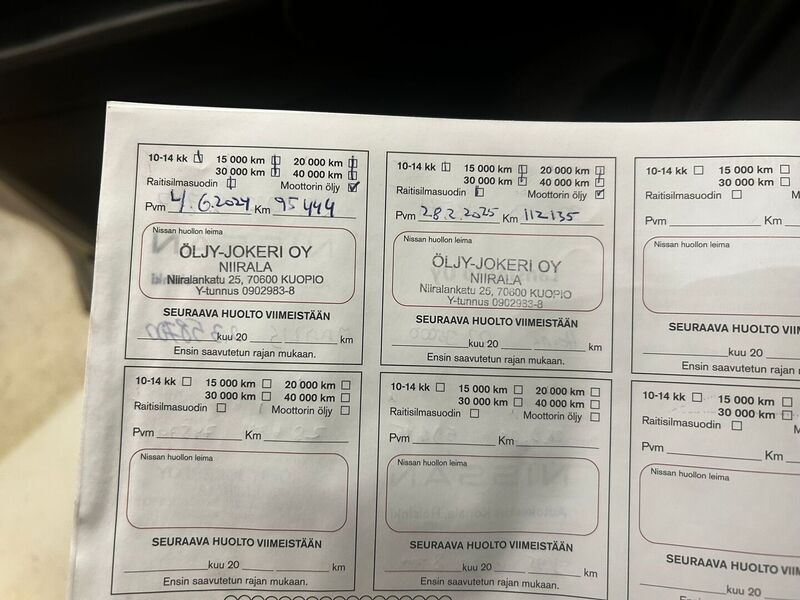 10-14 kk 15 000 km 20 000 km
30 000 km 40 000 km
Raitisilmasuodin Moottorin öljy
Pvm 4.6.2024 Km 95444
Nissan huollon leima
ÖLJY-JOKERI OY
NIIRALA
Niiralankatu 25, 70600 KUOPIO
Y-tunnus 0902983-8
SEURAAVA HUOLTO VIIMEISTÄÄN
kuu 20 km
Ensin saavutetun rajan mukaan.
10-14 kk 15 000 km 20 000 km
30 000 km 40 000 km
Raitisilmasuodin Moottorin öljy
Pvm 28.2.2025 Km 112135
Nissan huollon leima
ÖLJY-JOKERI OY
NIIRALA
Niiralankatu 25, 70600 KUOPIO
Y-tunnus 0902983-8
SEURAAVA HUOLTO VIIMEISTÄÄN
kuu 20 km
Ensin saavutetun rajan mukaan.
10-14 kk 15 000 km
30 000 km
Raitisilmasuodin M
Pvm Km
Nissan huollon leima
SEURAAVA HUOLTO VIIM
kuu 20
Ensin saavutetun rajan m
10-14 kk 15 000 km 20 000 km
30 000 km 40 000 km
Raitisilmasuodin Moottorin öljy
Pvm Km
Nissan huollon leima
SEURAAVA HUOLTO VIIMEISTÄÄN
kuu 20 km
Ensin saavutetun rajan mukaan.
10-14 kk 15 000 km 20 000 km
30 000 km 40 000 km
Raitisilmasuodin Moottorin öljy
Pvm Km
Nissan huollon leima
SEURAAVA HUOLTO VIIMEISTÄÄN
kuu 20 km
Ensin saavutetun rajan mukaan.
10-14 kk 15 000 km
30 000 km
Raitisilmasuodin M
Pvm Km
Nissan huollon leima
SEURAAVA HUOLTO VIIM
kuu 20
Ensin saavutetun rajan m